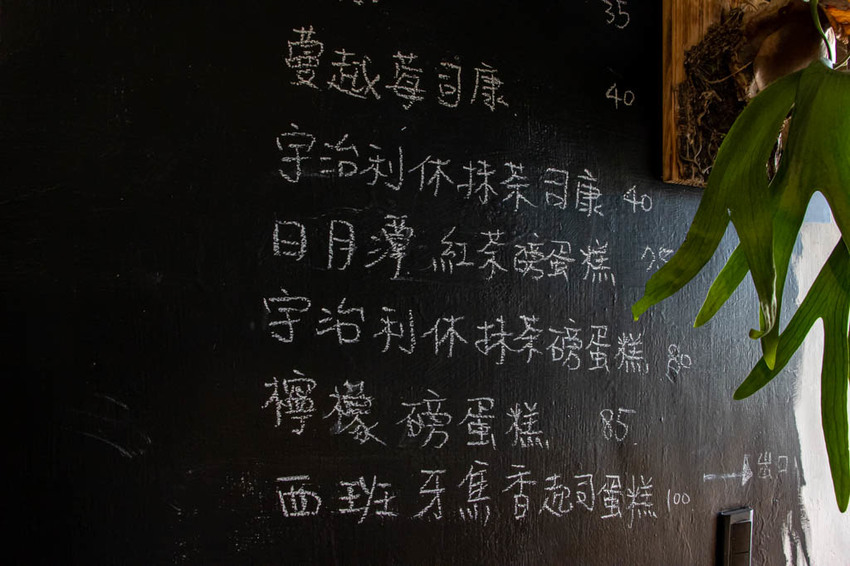 35
蔓越莓司康 40
宇治利休抹茶司康 40
日月潭紅茶磅蛋糕
宇治利休抹茶磅蛋糕 80
檸檬磅蛋糕 85
西班牙焦香起司蛋糕 100
→出口